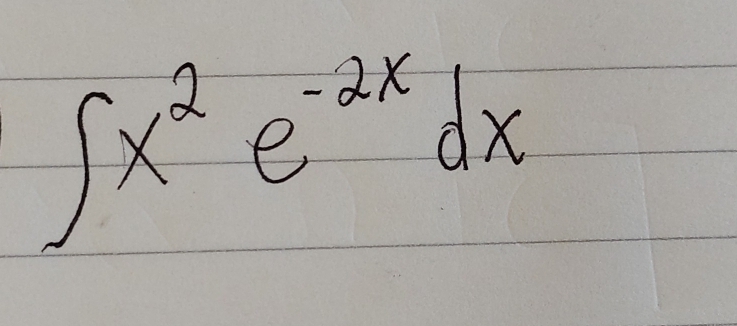 ∫x² e⁻²ˣ dx